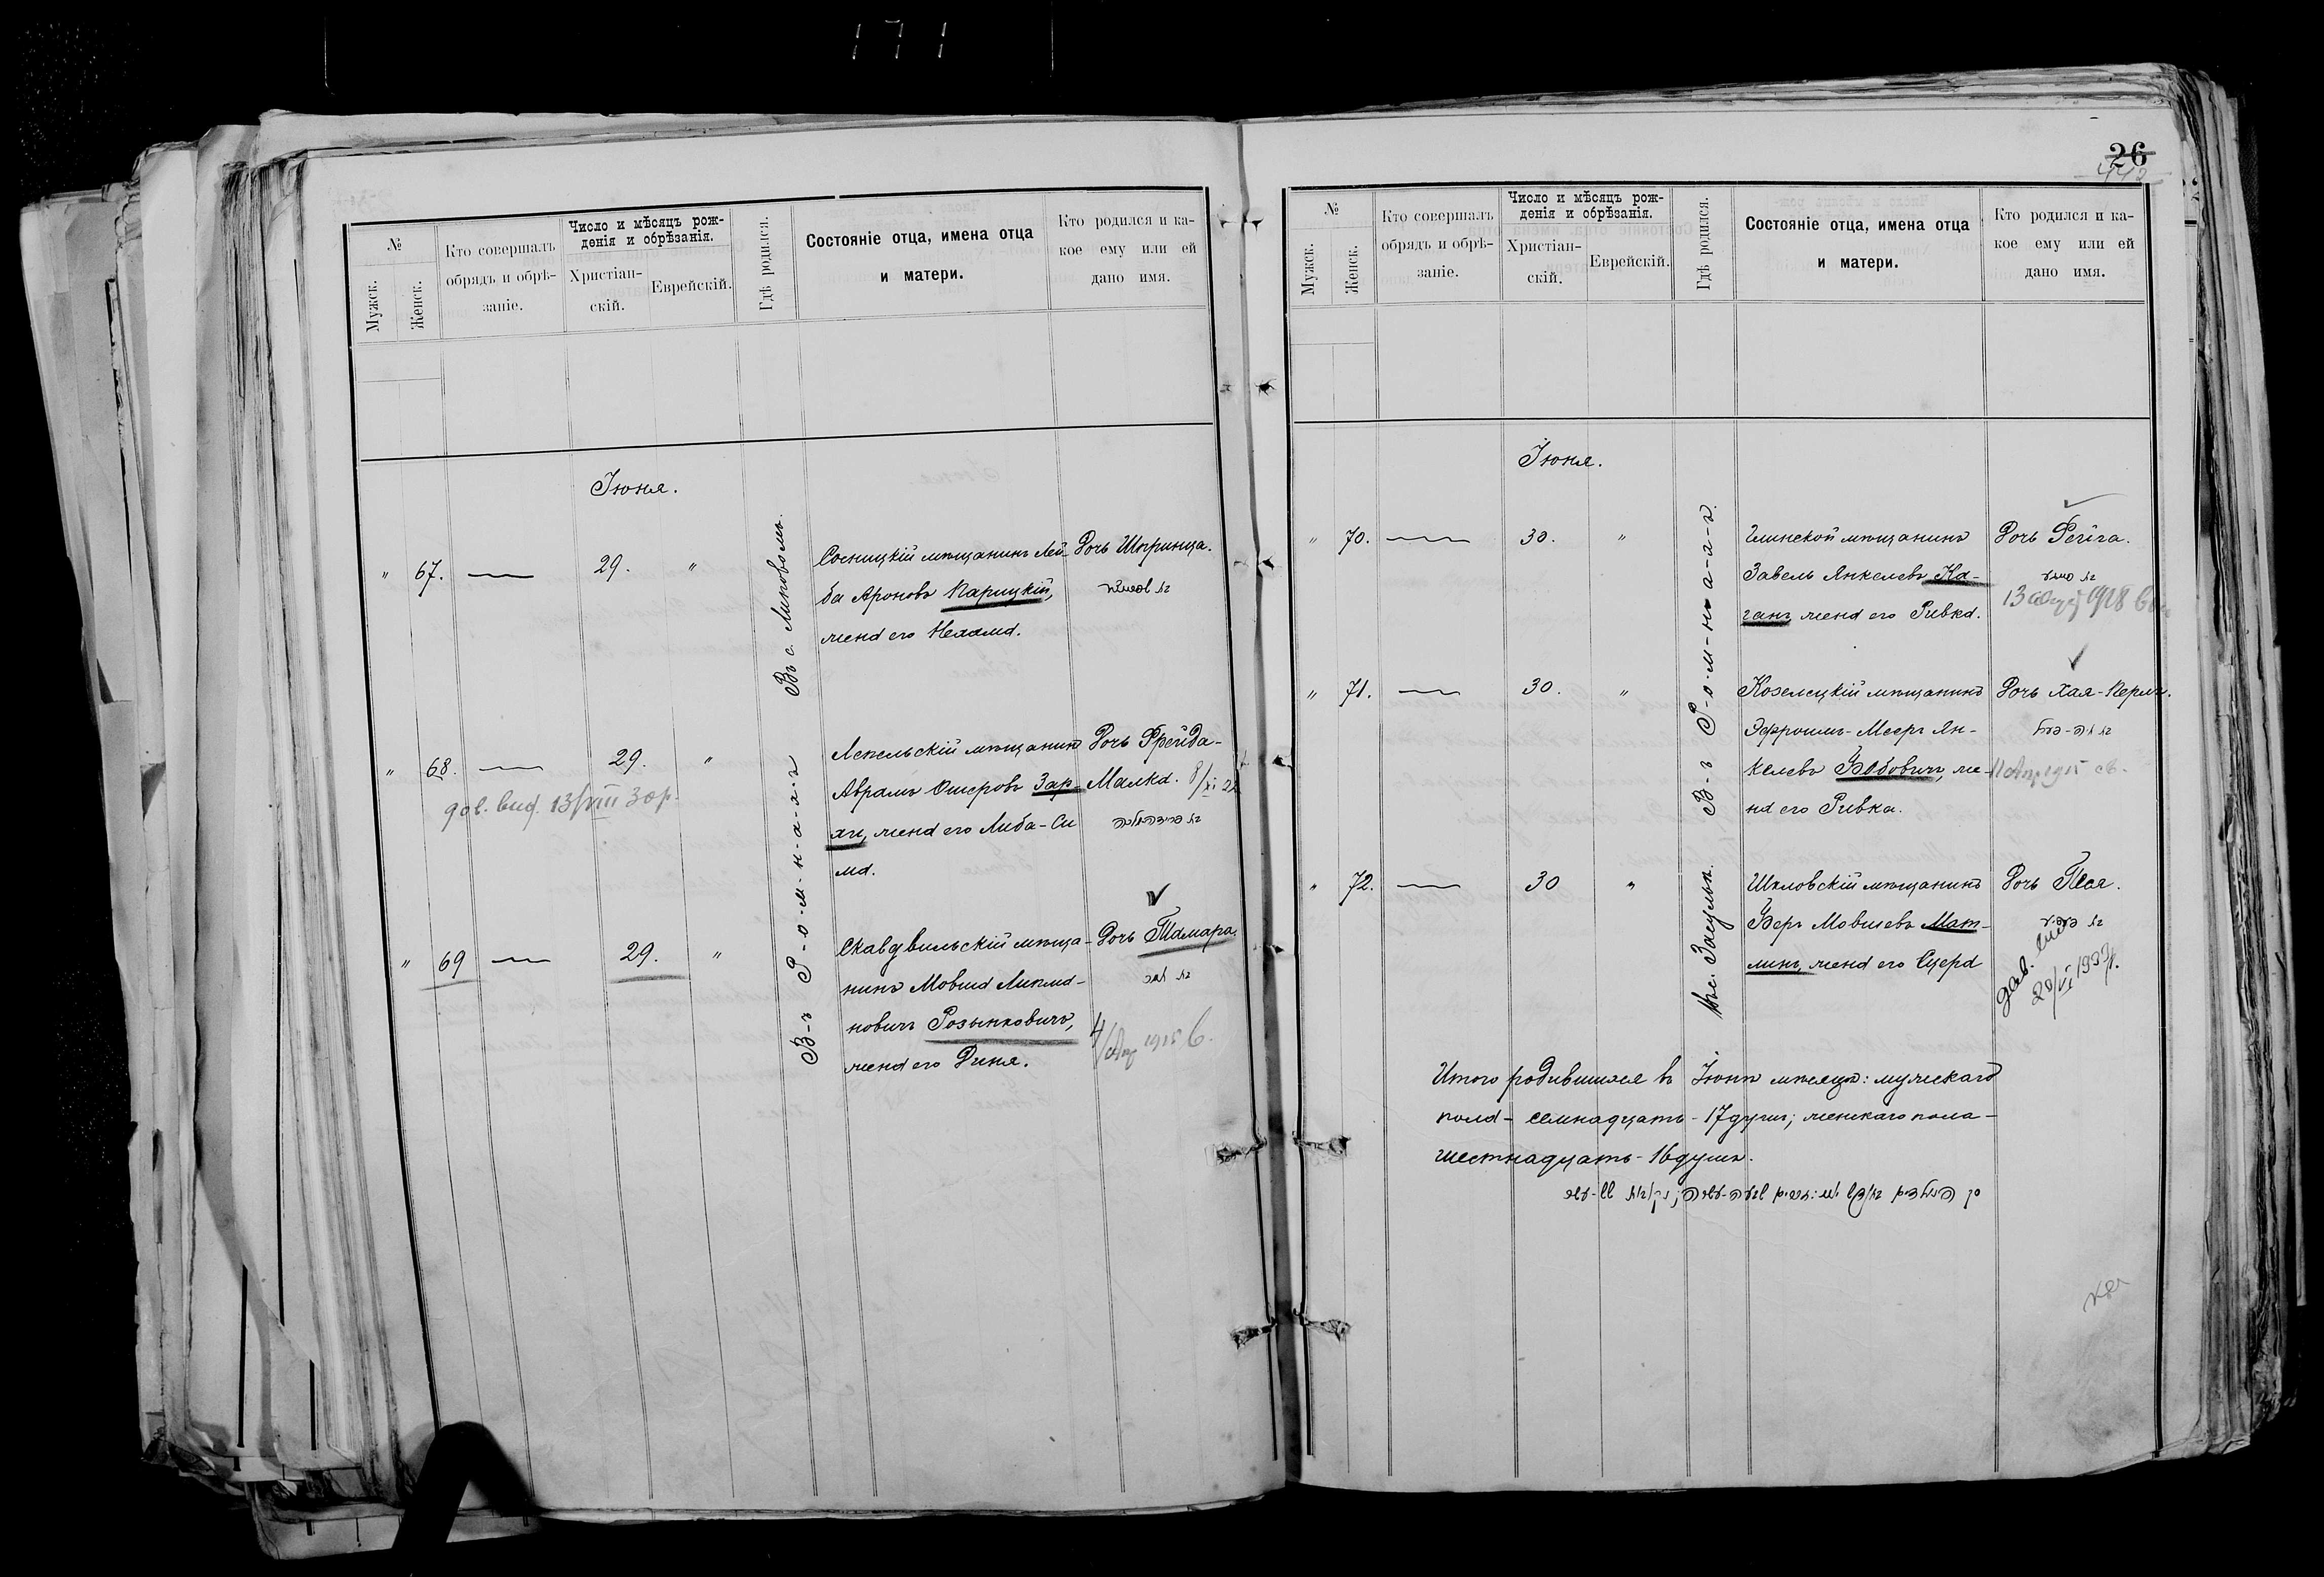 171
№
Мужск.
Женск.
Кто совершалъ
обрядъ и обрѣ-
заніе.
Число и мѣсяцъ рож-
денія и обрѣзанія.
Христіан-
скій.
Еврейскій.
Гдѣ родился.
Состояніе отца, имена отца
и матери.
Кто родился и ка-
кое ему или ей
дано имя.
Іюня.
" 67. — 29. "
Въ с. Липовомъ.
Сосницкій мѣщанинъ Лей-
ба Ароновъ Карицкій,
жена его Нехама.
Дочь Шпринца.
" 68. — 29. "
13/VIII 30 р.
В-ъ Р-о-м-н-а-х-ъ
Лепельскій мѣщанинъ
Аврамъ Ошеровъ Зар-
хи, жена его Либа-Си
ма.
Дочь Фрейда-
Малка. 8/XI 22
" 69 — 29. "
Скавдвильскій мѣща-
нинъ Мовша Липма-
новичъ Розынковичъ,
жена его Диня.
Дочь Тамара.
1915
26
442
№
Мужск.
Женск.
Кто совершалъ
обрядъ и обрѣ-
заніе.
Число и мѣсяцъ рож-
денія и обрѣзанія.
Христіан-
скій.
Еврейскій.
Гдѣ родился.
Состояніе отца, имена отца
и матери.
Кто родился и ка-
кое ему или ей
дано имя.
Іюня.
" 70. — 30. "
В-ъ Р-о-м-н-а-х-ъ.
Глинской мѣщанинъ
Завель Янкелевъ Ка-
ганъ, жена его Ривка.
Дочь Фейга.
13 1918
" 71. — 30. "
Козелецкій мѣщанинъ
Эфроимъ-Мееръ Ян-
келевъ Бабовичъ, же-
на его Ривка.
Дочь Хая-Перля.
" 72. — 30 "
Засулья.
Шкловскій мѣщанинъ
Беръ Мовшевъ Мат-
линъ, жена его Сцера
Дочь Песя.
20/VI 1939 г.
Итого родившихся въ Іюнѣ мѣсяцѣ: мужескаго
пола - семнадцать - 17 душъ; женскаго пола -
шестнадцать - 16 душъ.